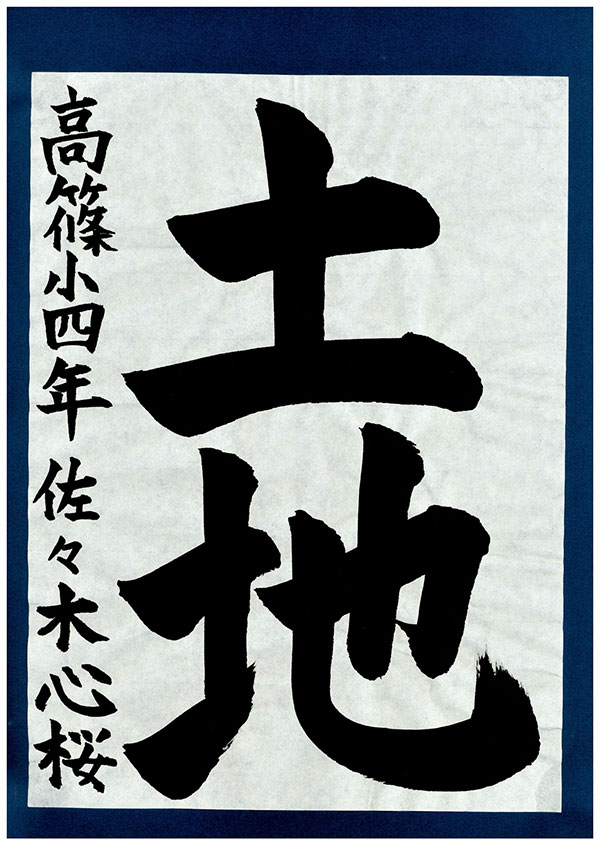 土地
高篠小四年 佐々木心桜